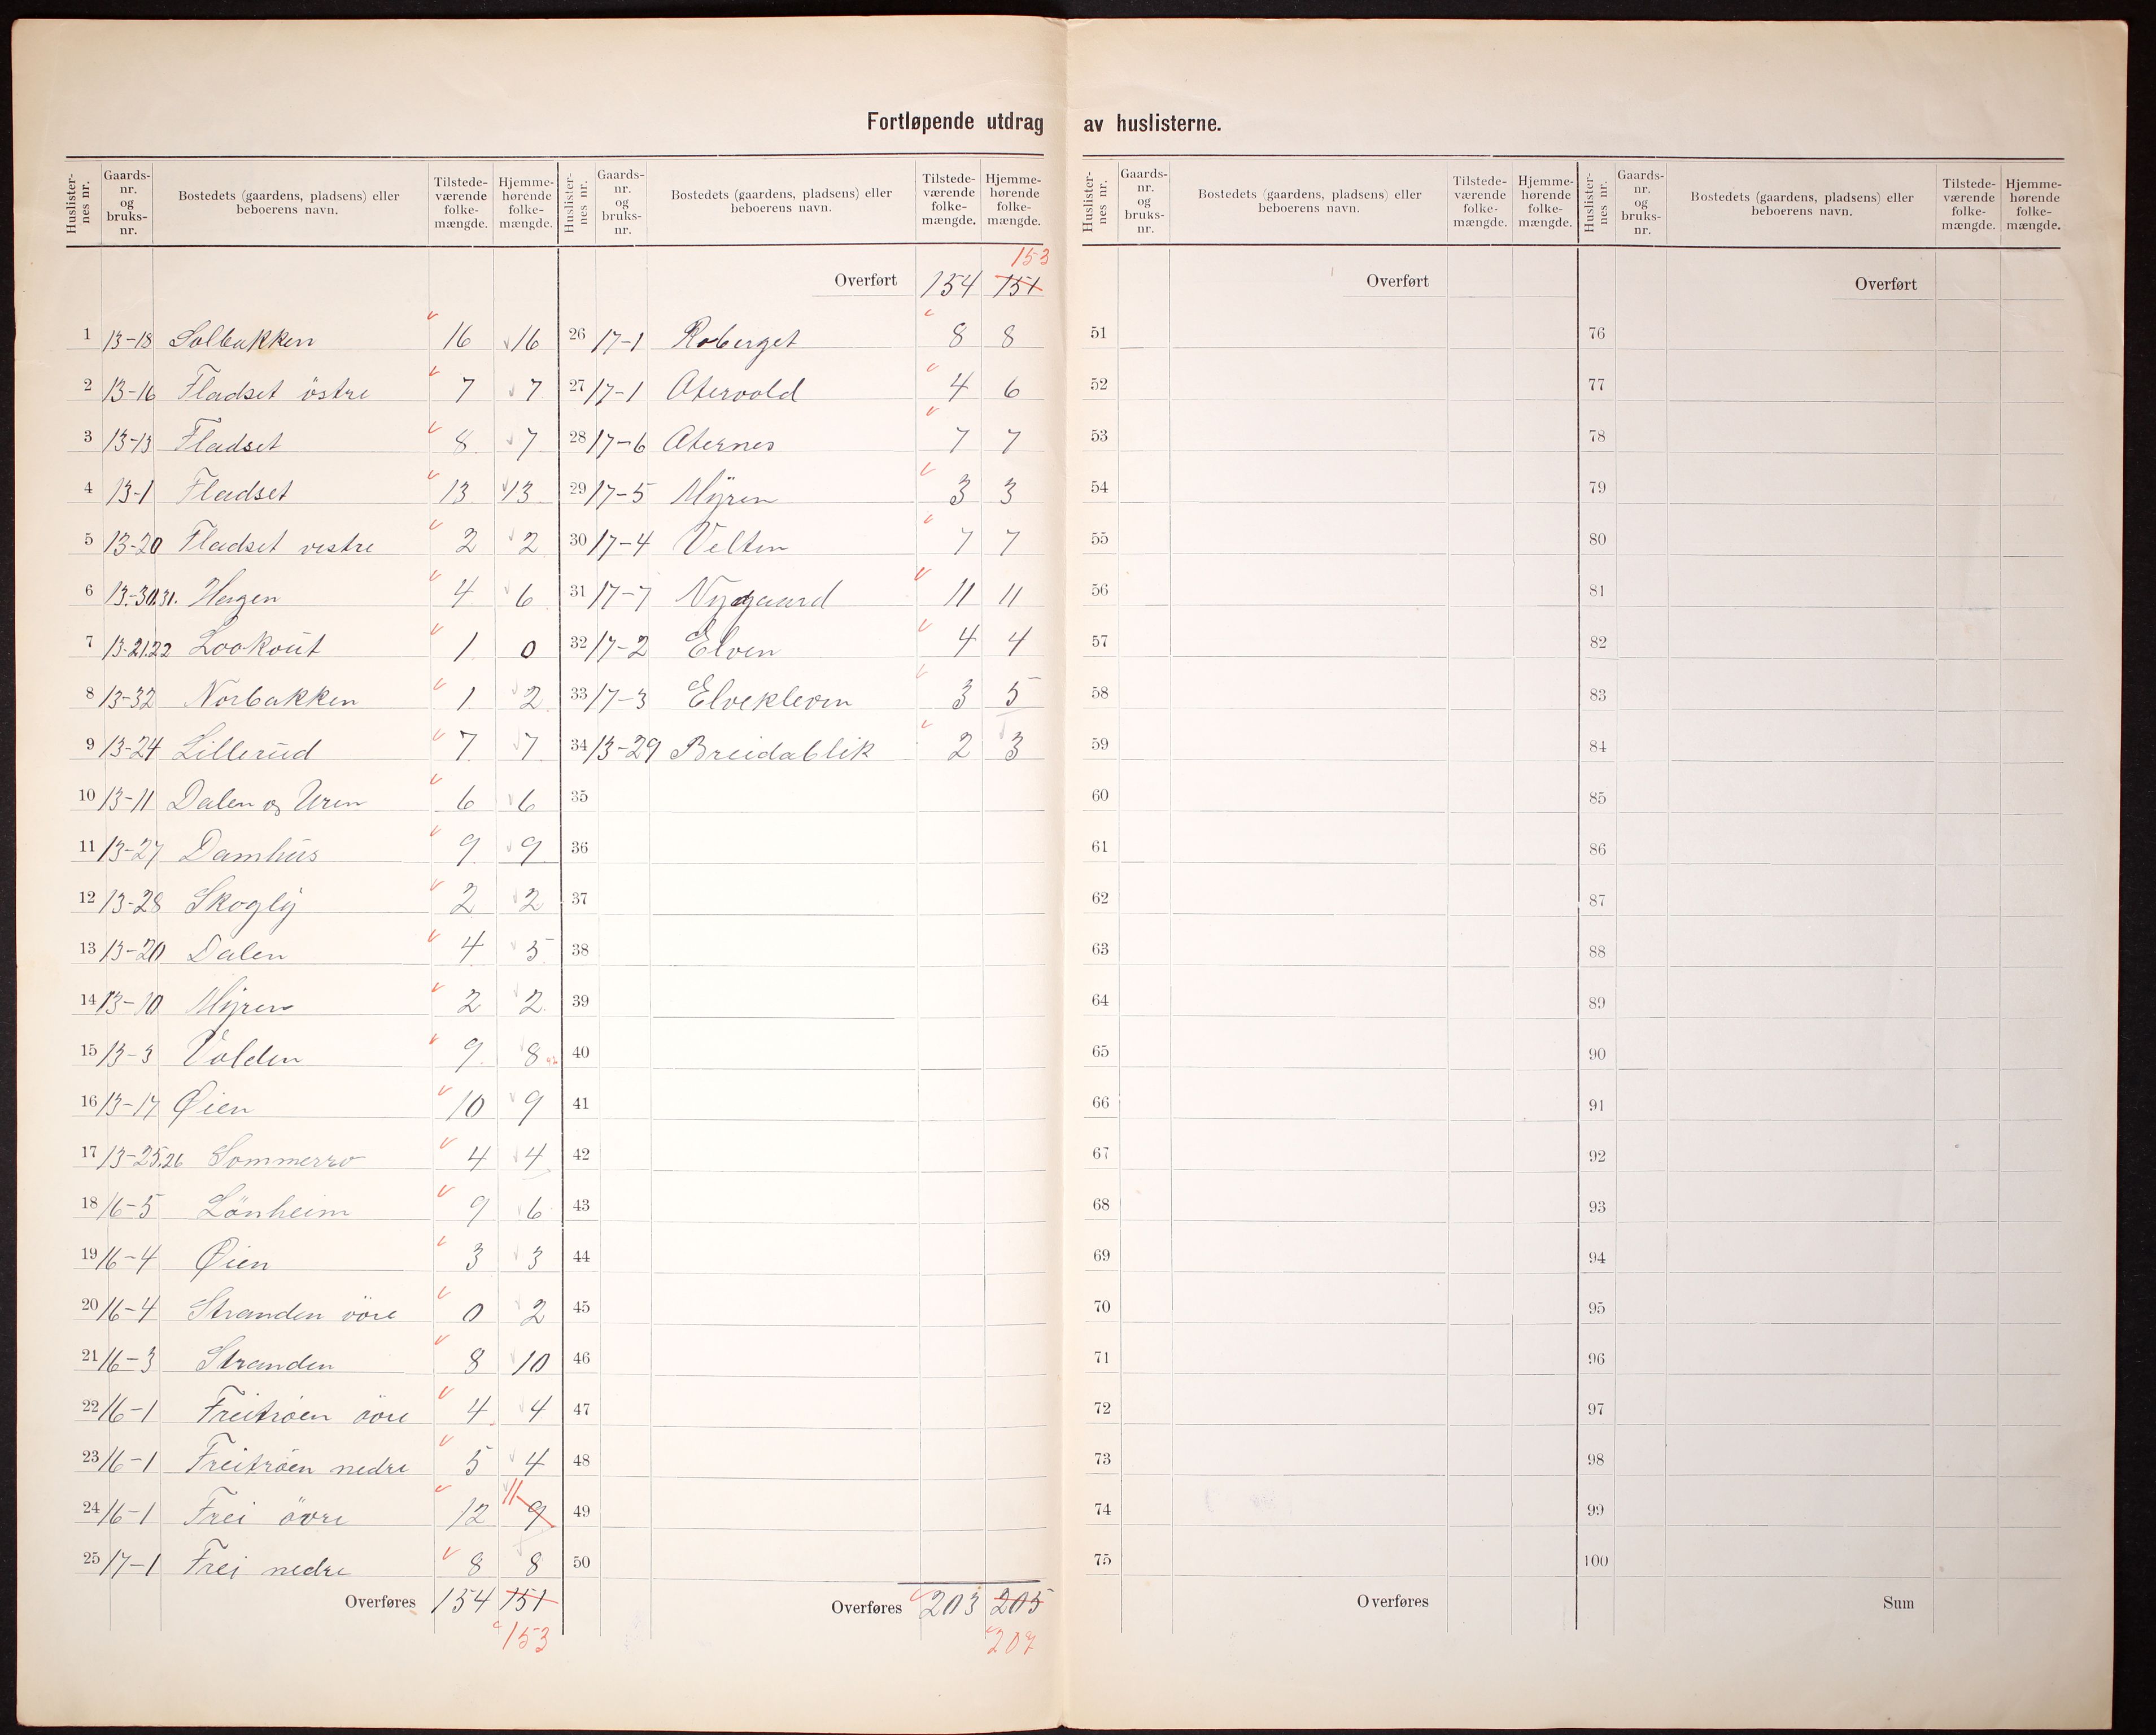 Fortløpende utdrag av huslisterne.
Huslister-nes nr. | Gaards-nr. og bruks-nr. | Bostedets (gaardens, pladsens) eller beboerens navn. | Tilstede-værende folke-mængde. | Hjemme-hørende folke-mængde.
1 13-18 Solbakken 16 16
2 13-16 Fladset östre 7 7
3 13-13 Fladset 8 7
4 13-1 Fladset 13 13
5 13-20 Fladset vestre 2 2
6 13-30.31. Hagen 4 6
7 13-21.22 Lookout 1 0
8 13-32 Norbakken 1 2
9 13-24 Lillerud 7 7
10 13-11 Dalen og Uren 6 6
11 13-27 Damhus 9 9
12 13-28 Skogly 2 2
13 13-20 Dalen 4 5
14 13-10 Myren 2 2
15 13-3 Volden 9 8
16 13-17 Øien 10 9
17 13-25.26 Sommerro 4 4
18 16-5 Lönheim 9 6
19 16-4 Øien 3 3
20 16-4 Stranden övre 0 2
21 16-3 Stranden 8 10
22 16-1 Freitröen övre 4 4
23 16-1 Freitröen nedre 5 4
24 16-1 Frei övre 12 11 9
25 17-1 Frei nedre 8 8
Overføres 154 151
153
Huslister-nes nr. | Gaards-nr. og bruks-nr. | Bostedets (gaardens, pladsens) eller beboerens navn. | Tilstede-værende folke-mængde. | Hjemme-hørende folke-mængde.
153
Overført 154 151
26 17-1 Roberget 8 8
27 17-1 Atervold 4 6
28 17-6 Aternes 7 7
29 17-5 Myren 3 3
30 17-4 Velten 7 7
31 17-7 Nygaard 11 11
32 17-2 Elven 4 4
33 17-3 Elvekleven 3 5
34 13-29 Breidablik 2 3
35
36
37
38
39
40
41
42
43
44
45
46
47
48
49
50
Overføres 203 205
207
Huslister-nes nr. | Gaards-nr. og bruks-nr. | Bostedets (gaardens, pladsens) eller beboerens navn. | Tilstede-værende folke-mængde. | Hjemme-hørende folke-mængde.
Overført
51
52
53
54
55
56
57
58
59
60
61
62
63
64
65
66
67
68
69
70
71
72
73
74
75
Overføres
Huslister-nes nr. | Gaards-nr. og bruks-nr. | Bostedets (gaardens, pladsens) eller beboerens navn. | Tilstede-værende folke-mængde. | Hjemme-hørende folke-mængde.
Overført
76
77
78
79
80
81
82
83
84
85
86
87
88
89
90
91
92
93
94
95
96
97
98
99
100
Sum